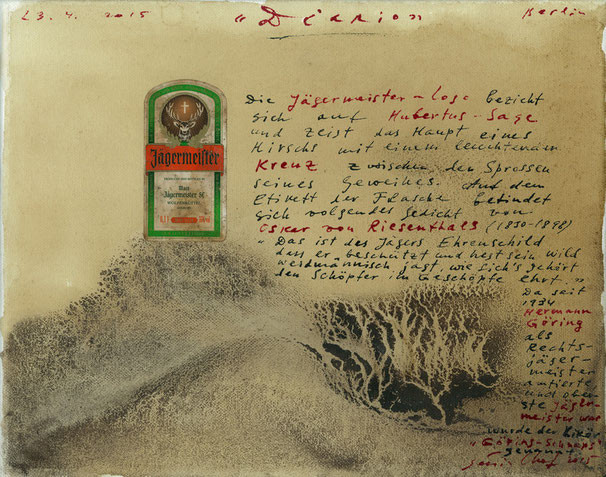 23. 4. 2015 "Dĕarion" Berlin
Die Jägermeister-Logo bezieht
sich auf Hubertus-Sage
und zeist das Haupt eines
Hirschs mit einem leuchtenden
Kreuz zwischen den Sprossen
seines Geweihes. Auf dem
Etikett der Flasche befindet
sich volgendes Gedicht von
Oskar von Riesenthals (1830-1898)
"Das ist des Jägers Ehrenschild
dass er beschützt und hegt sein Wild
weidmännisch jagt, wie sich's gehört
den Schöpfer im Geschöpfe ehrt."
Da seit
1934
Hermann
Göring
als
Reichs-
jäger-
meister
amtierte
und ober-
ste Jäger-
meister war
wurde der Likör
"Göring-Schnaps"
genannt
2015
Jägermeister
Jägermeister